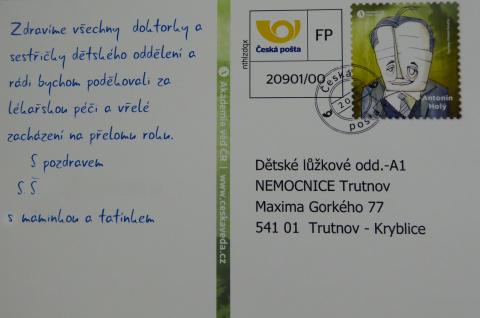 Zdravíme všechny doktorky a
sestřičky dětského oddělení a
rádi bychom poděkovali za
lékařskou péči a vřelé
zacházení na přelomu roku.
S pozdravem
S.Š.
s maminkou a tatínkem
Akademie věd ČR | www.ceskaveda.cz
nthlzdqx
Česká pošta
FP
20901/00
Česká
pošta
Antonín
Holý
Dětské lůžkové odd.-A1
NEMOCNICE Trutnov
Maxima Gorkého 77
541 01 Trutnov - Kryblice